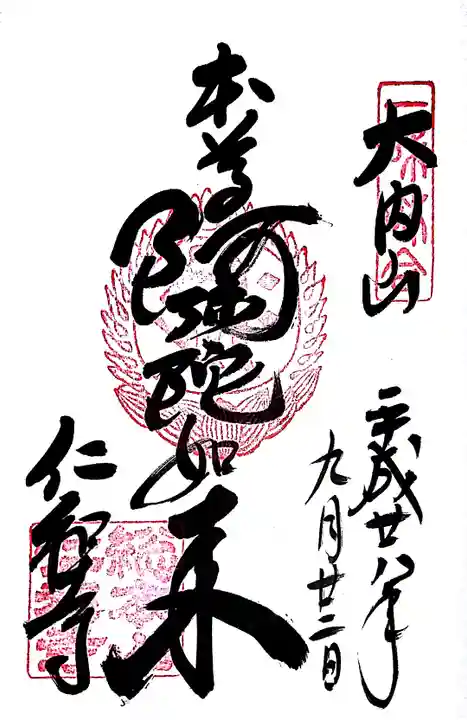 大内山
平成廿八年
九月廿二日
本尊阿弥陀如来
仁和寺